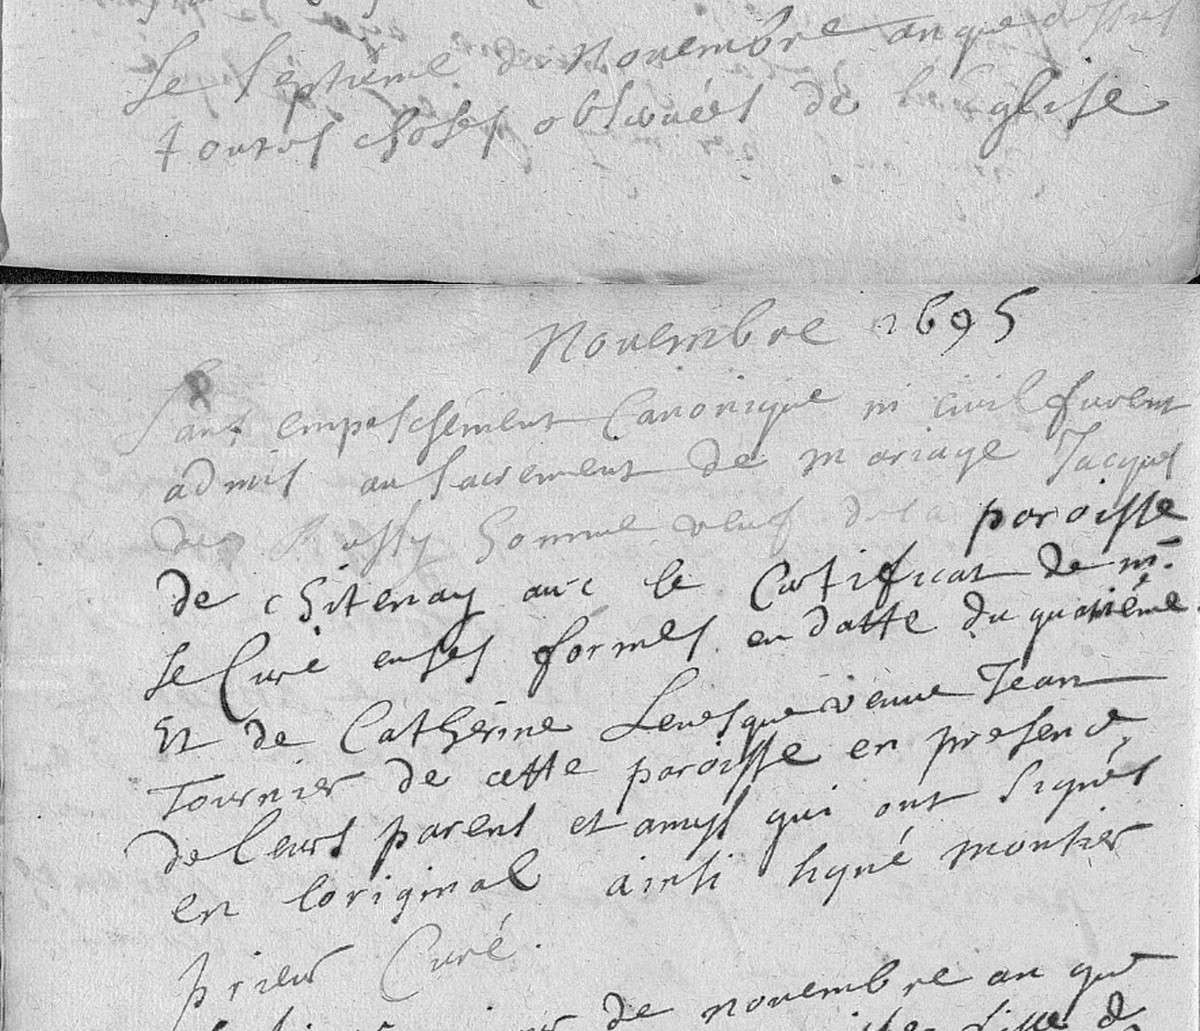 Le septieme de Novembre an que dessus
toutes choses observées de l'Eglise
Novembre 1695
Sans empeschement Canonique ni civil furent
admis au sacrement de mariage Jacques
homme veuf de la paroisse
de chitenay avec le Certificat de mr.
le Curé en ses formes en datte du quatriéme
Et de Catherine Levesque veuve Jean
Tournier de cette paroisse en presence
de leurs parens et amys qui ont signés
en loriginal ainsi signé montier
prieur Curé.
de novembre an que